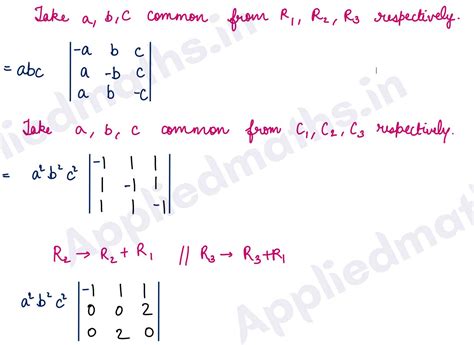 Take a, b, c common from R₁, R₂, R₃ respectively.
= abc | -a b c |
| a -b c |
| a b -c |
Take a, b, c common from C₁, C₂, C₃ respectively.
= a²b²c² | -1 1 1 |
| 1 -1 1 |
| 1 1 -1 |
R₂ → R₂ + R₁ // R₃ → R₃+R₁
a²b²c² | -1 1 1 |
| 0 0 2 |
| 0 2 0 |
Appliedmaths.in
Appliedmaths.in